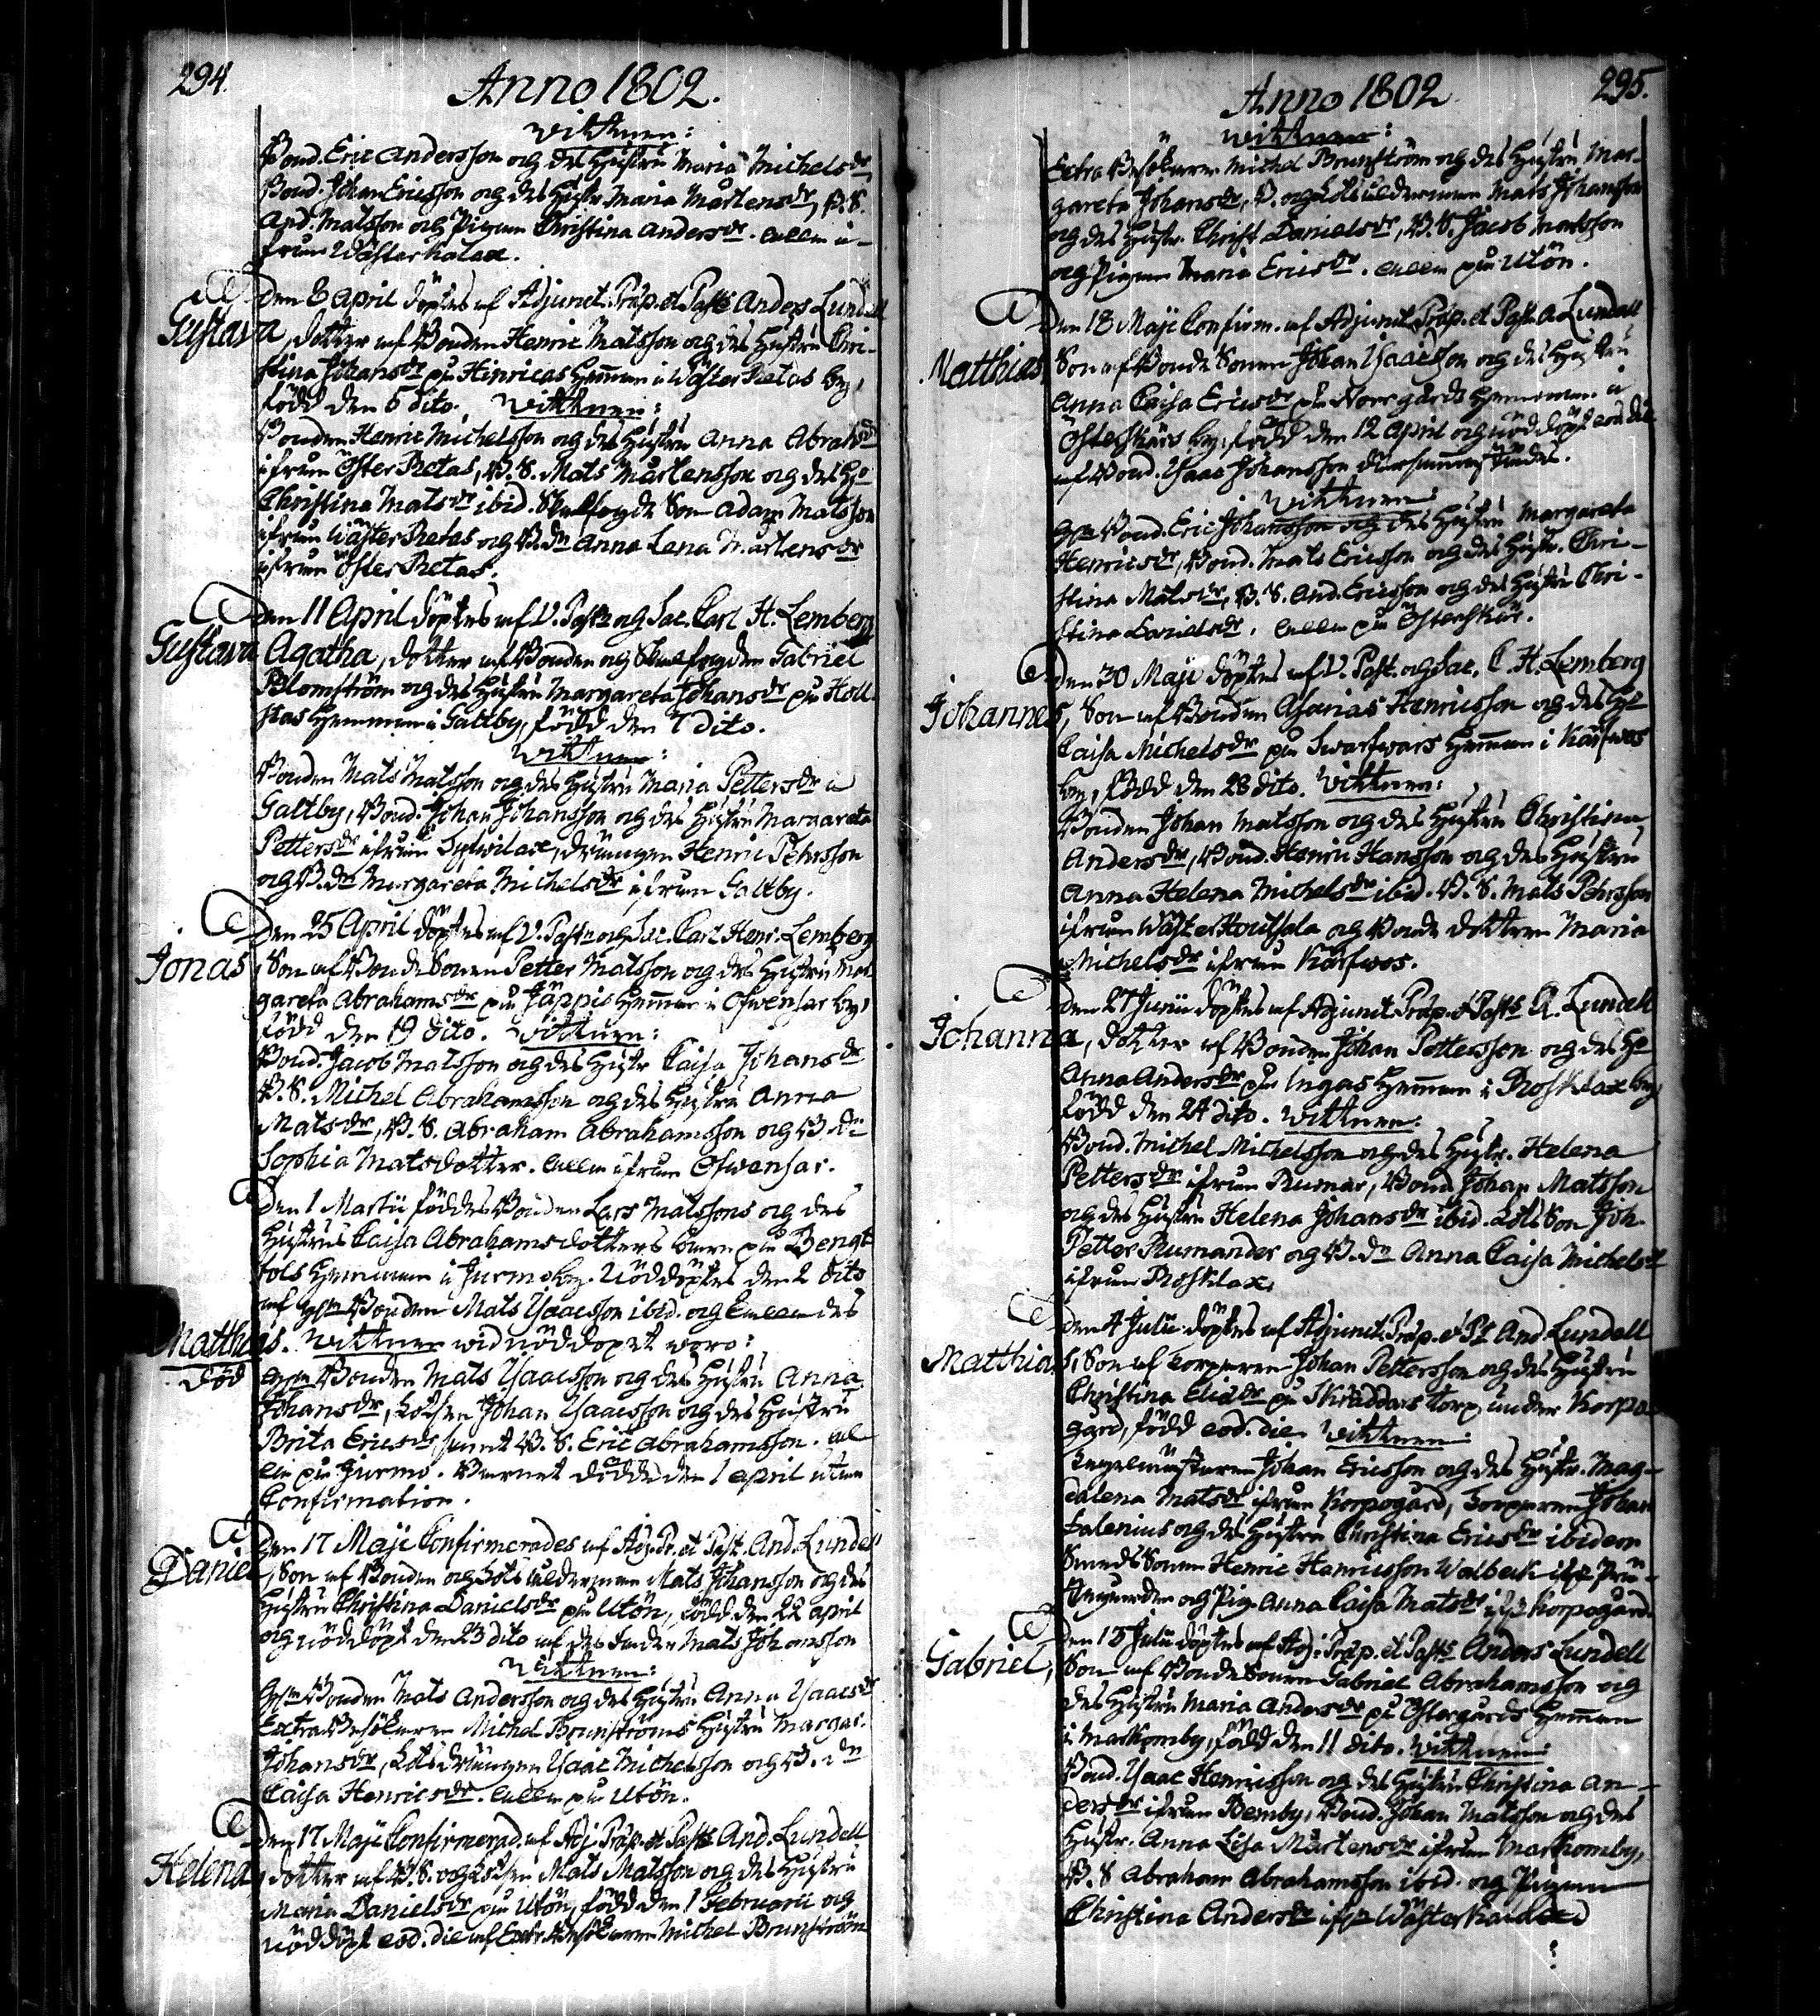 294.
Anno 1802.
Wittnen:
Bond. Eric Andersson och des Hustru Maria Michelsdr
Bond. Johan Ericsson och des Hustr. Maria Mårtensdr, B. S.
And. Matsson och Pigan Christina Andersdr. alla i-
från Wästerkalax.
Den 8 April döptes af Adjunct. Præp. et Past: Anders Lundell
Gustava, dotter af Bonden Henric Matsson och des Hustru Chri-
stina Johansdr på Hinricas Hemman i Wäster Retas by,
född den 6 dito. Wittnen:
Bonden Henric Michelsson och des Hustru Anna Abrahsdr
ifrån Öster Retas, B. S. Mats Mårtensson och des Hu
Christina Matsdr ibid. Skallfogde Son Adam Matsson
ifrån Wäster Retas och B. dr Anna Lena Mårtensdr
ifrån Öster Retas.
Den 11 April döptes af V. Past: och Sac. Carl H. Lemberg
Gustava Agatha, dotter af Bonden och Skallfogden Gabriel
Blomström och des Hustru Margareta Johansdr på Holl-
stas Hemman i Galtby, född den 7 dito.
Wittnen:
Bonden Mats Matsson och des Hustru Maria Pettersdr i
Galtby, Bond. Johan Johansson och des Hustru Margareta
Pettersdr ifrån, drängen Henric Pehrsson
och B. dr Margareta Michelsdr ifrån Galtby.
Den 25 April döptes af V. Past: och Sac. Carl Henr. Lemberg
Jonas, Son af Bonde Sonen Petter Matsson och des Hustru Mar-
gareta Abrahamsdr på Jäppis Hemman i Ofvensar by,
född den 19 dito. Wittnen:
Bond. Jacob Matsson och des Hustr Caisa Johansdr
B. S. Michel Abrahamsson och des Hustru Anna
Matsdr, B. S. Abraham Abrahamsson och B. dr
Sophia Matsdotter. alla ifrån Ofwensar.
Den 1 Martii föddes Bonden Lars Matssons och des
Hustrus Caisa Abrahamsdotters barn på Bengt-
tols Hemman i Jurmo by. Nöddöptes den 2 dito
af Gsm Bonden Mats Isaacsson ibid. och kallades
Matthias. Wittnen wid nöddopet woro:
död Gsm Bonden Mats Isaacsson och des Hustru Anna
Johansdr, Lotsen Johan Isaacsson och des Hustru
Brita Ericsdr, samt B. S. Eric Abrahamsson. al-
la på Jurmo. Barnet dödde den 1 April utan
Confirmation.
Den 17 Maji Confirmerades af Adj. Pr. et Past. And. Lundell
Daniel, Son af Bonden och Lots ålderman Mats Johansson och des
Hustru Christina Danielsdr på Utön, född den 22 April
och nöddöpt den 23 dito af des fader Mats Johansson
Wittnen:
Gsm Bonden Mats Andersson och des Hustru Anna Isaacsdr
Extra Besökaren Michel Brunströms Hustru Margar.
Johansdr, Lots drängen Isaac Michelsson och B. dr
Caisa Henricsdr. alla på Utön.
Den 17 Maji Confirmerad. af Adj. Præp. et Past: And. Lundell
Helena, dotter af B. S. och Lotsen Mats Matsson och des Hustru
Maria Danielsdr på Utön, född den 1 Februarii och
nöddöpt eod. die af Extr. Besökaren Michel Brunström
295.
Anno 1802
Wittnen:
Extra Besökaren Michel Brunström och des Hustru Mar-
gareta Johansdr, B. och Lots ålderman Mats Johansson
och des Hustr. Christ. Danielsdr, B. S. Jacob Matsson
och Pigan Maria Ericsdr. alla på Utön.
Den 18 Maji Confirm. af Adjunct. Præp. et Past. A. Lundell
Matthias, Son af Bonde Sonen Johan Isaacsson och des Hustru
Anna Caisa Ericsdr på Norrgårds Hemman i
Österskärs by, född den 12 April och nöddöpt eod. die
af Bond. Isaac Johansson därsammastädes.
Wittnen:
Gsm Bond. Eric Johansson och des Hustru Margareta
Henricsdr, Bond. Mats Ericsson och des Hustr. Chri-
stina Matsdr, B. S. And. Ericsson och des Hustru Chri-
stina Danielsdr. alla på Österskär.
Den 30 Maji döptes af V. Past. och Sac. C. H. Lemberg
Johannes, Son af Bonden Asarias Henricsson och des Hu
Caisa Michelsdr på Swarfwars Hemman i Kårfwos
by, född den 28 dito. Wittnen:
Bonden Johan Matsson och des Hustru Christina
Andersdr, Bond. Henric Hansson och des Hustru
Anna Helena Michelsdr ibid. B. S. Mats Pehrsson
ifrån Wäster Houtsala och Bonde dottern Maria
Michelsdr ifrån Kårfwos.
Den 27 Junii döptes af Adjunct. Præp. & Past: A. Lundell
Johanna, dotter af Bonden Johan Pettersson och des Hu
Anna Andersdr på Ingas Hemman i Rosklax by
född den 24 dito. Wittnen:
Bond. Michel Michelsson och des Hustr. Helena
Pettersdr ifrån Rumar, Bond. Johan Matsson
och des Hustru Helena Johansdr ibid. Lots Son Joh.
Petter Rumander och B. dr Anna Caisa Michelsdr
ifrån Rosklax.
Den 4 Julii döptes af Adjunct. Præp. & Pt And. Lundell
Matthias, Son af Torparen Johan Pettersson och des Hustru
Christina Eliædr på Skräddars torp under Korpo-
gård, född eod. die. Wittnen:
Tegelmästaren Johan Ericsson och des Hustr. Mag-
dalena Matsdr ifrån Korpogård, Torparen Johan
Falenius och des Hustru Christina Ericsdr ibidem
Smeds Sonen Henric Henricsson Walbeck ifr. Prä-
stegården och Pig. Anna Caisa Matsdr ifr. Korpogård.
Den 13 Julii döptes af Adj. Præp. et Past: Anders Lundell
Gabriel, Son af Bonde Sonen Gabriel Abrahamsson och
des Hustru Maria Andersdr på Östergårds Hemman
i Markomby, född den 11 dito. Wittnen:
Bond. Isaac Henricsson och des Hustru Christina An-
dersdr ifrån Bemby, Bond. Johan Matsson och des
Hustr. Anna Lisa Mårtensdr ifrån Markomby,
B. S. Abraham Abrahamsson ibid. och Pigan
Christina Andersdr ifr. Wästerkalax